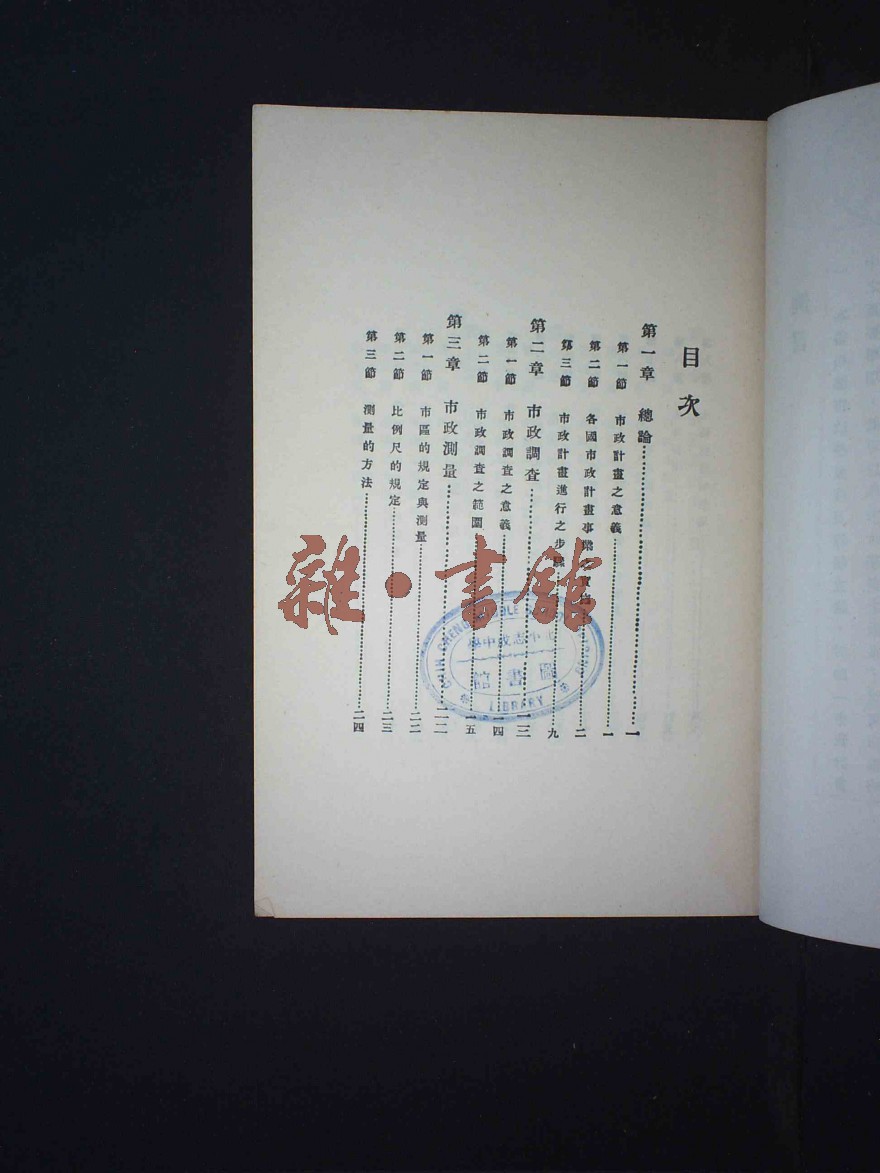 目次
第一章 總論 一
第一節 市政計畫之意義 一
第二節 各國市政計畫事業 二
第三節 市政計畫進行之步 九
第二章 市政調查 一三
第一節 市政調查之意義 一四
第二節 市政調查之範圍 一五
第三章 市政測量 二二
第一節 市區的規定與測量 二二
第二節 比例尺的規定 二三
第三節 測量的方法 二四
雜·書館
圖書館
LIBRARY